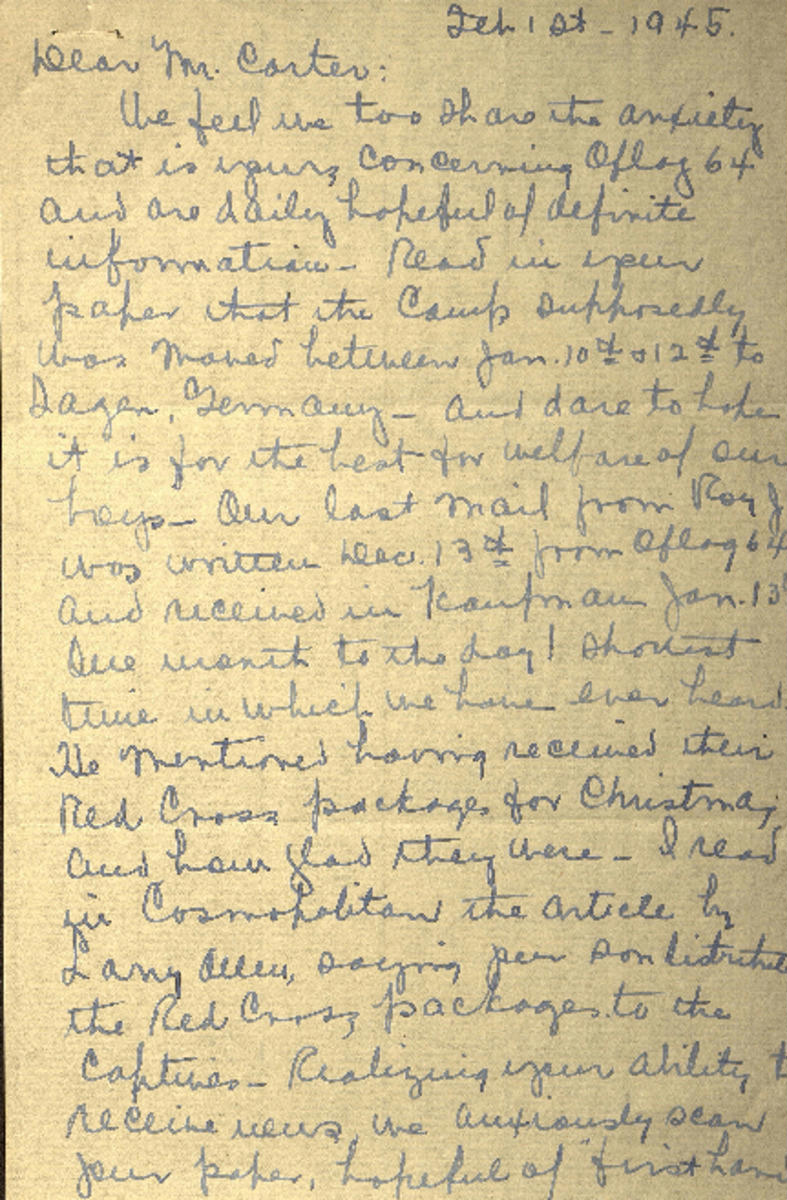 Feb 1st - 1945.
Dear Mr. Carter:
We feel we too share the anxiety
that is yours, concerning Oflag 64
and are daily hopeful of definite
information - Read in your
paper that the Camp supposedly
was moved between Jan. 10th & 12th to
Germany - and dare to hope
it is for the best for welfare of our
boys - Our last mail from Roy J
was written Dec. 13th from Oflag 64
and received in Kaufman Jan. 13
One month to the day! Shortest
time in which we have ever heard.
He mentioned having received their
Red Cross packages for Christmas,
and how glad they were - I read
in Cosmopolitan the article by
Larry Allen, saying your son distribute
the Red Cross packages to the
Captives - Realizing your ability t
receive news, we anxiously scan
your paper, hopeful of "first hand